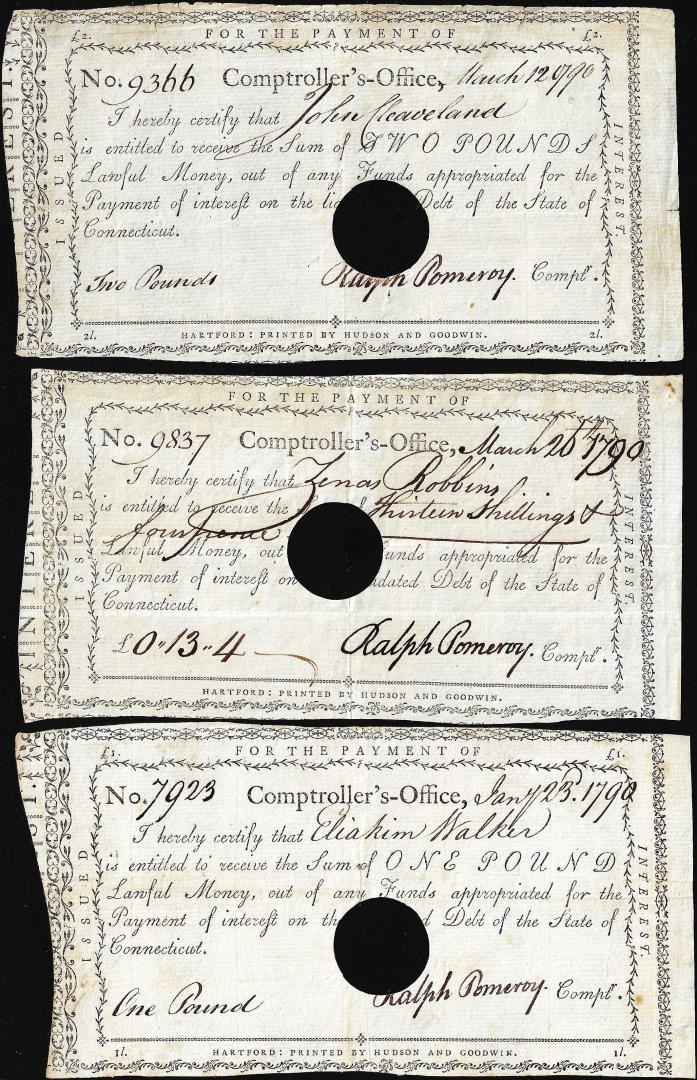 £2. FOR THE PAYMENT OF £2.
No. 9366 Comptroller's-Office, March 12 1790
I hereby certify that John Cleaveland
is entitled to receive the Sum of TWO POUNDS
Lawful Money, out of any Funds appropriated for the
Payment of interest on the Debt of the State of
Connecticut.
Two Pounds Ralph Pomeroy. Comptr.
2l. HARTFORD: PRINTED BY HUDSON AND GOODWIN. 2l.
ISSUED
INTEREST.
FOR THE PAYMENT OF
No. 9837 Comptroller's-Office, March 26th 1790
I hereby certify that Zenas Robbins
is entitled to receive the Thirteen Shillings &
fourpence
Lawful Money, out Funds appropriated for the
Payment of interest on Debt of the State of
Connecticut.
£0"13"4 Ralph Pomeroy. Comptr.
HARTFORD: PRINTED BY HUDSON AND GOODWIN.
ISSUED
INTEREST.
£1. FOR THE PAYMENT OF £1.
No. 7923 Comptroller's-Office, Jany 23d. 1790
I hereby certify that Eliakim Walker
is entitled to receive the Sum of ONE POUND
Lawful Money, out of any Funds appropriated for the
Payment of interest on Debt of the State of
Connecticut.
One Pound Ralph Pomeroy. Comptr.
1l. HARTFORD: PRINTED BY HUDSON AND GOODWIN. 1l.
ISSUED
INTEREST.